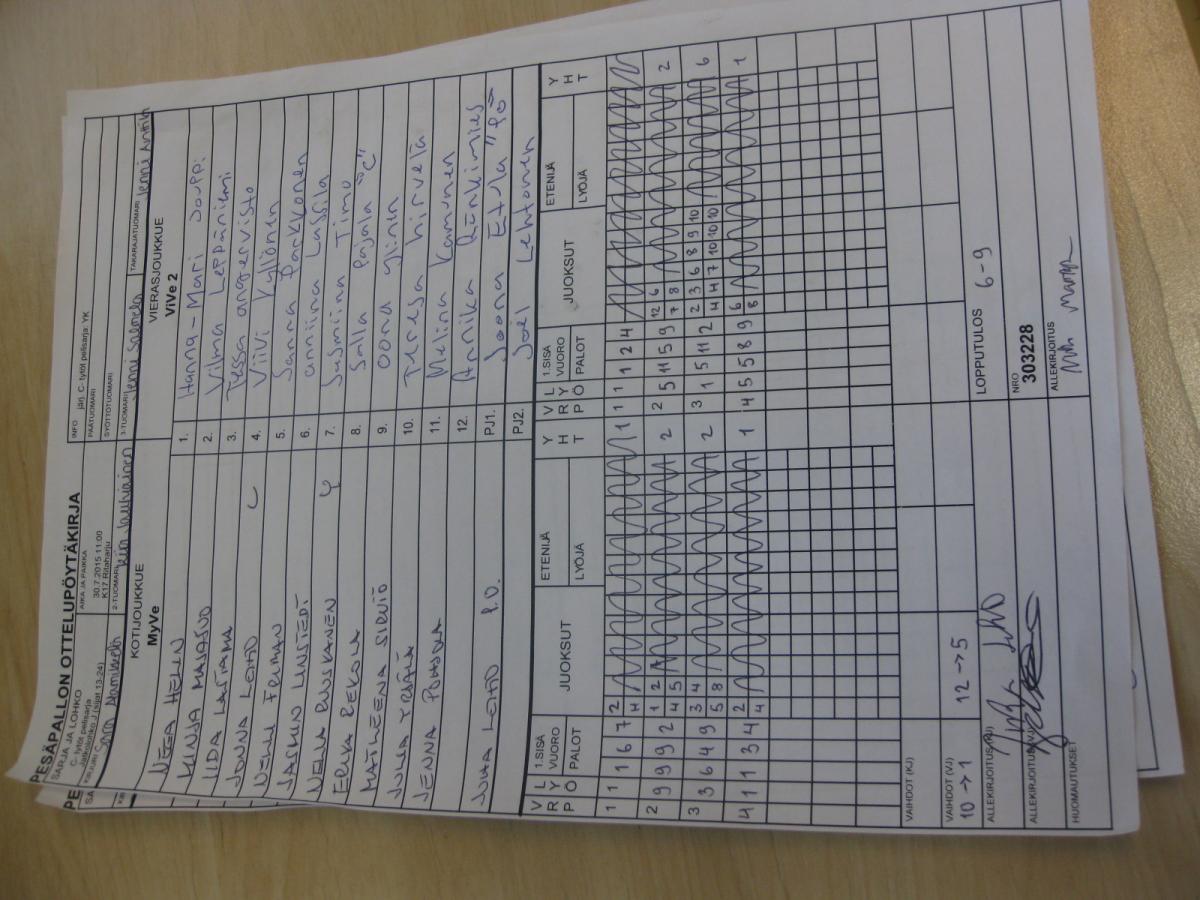 PESÄPALLON OTTELUPÖYTÄKIRJA
SARJA JA LOHKO
AIKA JA PAIKKA
INFO järj. C- tytöt pelisarja: YK
C- tytöt pelisarja
30.7.2015 11:00
PÄÄTUOMARI
K17 Ritaharju
SYÖTTÖTUOMARI
KIRJURI
2-TUOMARI
3-TUOMARI Jenni Salmela
TAKARAJATUOMARI Jenni Anttila
KOTIJOUKKUE
VIERASJOUKKUE
MyVe
ViVe 2
HELIN 1. Hanna-Mari Jouppi
MINJA MAJASUO 2. Vilma Leppäniemi
IIDA LATJAMA 3. Tessa
JONNA LEHTO L 4. Viivi Kyllönen
NELLI FRIMAN 5. Sanna Parkkonen
JASMIN LUNSTEDT 6. anniina Lassila
NELLA RUUSKANEN Y 7. Jasmiina Timo
ERIKA REKOLA 8. Salla Pajala "C"
MATLEENA SIRVIÖ 9. Oona ylinen
JULIA YRJÄLÄ 10. Teresa hirvelä
JENNA POHJOLA 11. Melina Kamunen
12. Annika Rönkimies
JUHA LEHTO P.J. PJ1. Joona Etula "PJ"
PJ2. Joel Lehtonen
V R P L Y Ö 1.SISÄ VUORO PALOT JUOKSUT ETENIJÄ LYÖJÄ Y H T V R P L Y Ö 1.SISÄ VUORO PALOT JUOKSUT ETENIJÄ LYÖJÄ Y H T
1 1 1 6 7 2 4 1 1 1 1 2 4
2 9 9 9 2 1 2 4 5 2 2 5 11 5 9 12 6 7 8 2
3 3 6 4 9 3 4 5 8 2 3 1 5 11 2 2 3 6 8 9 10 4 4 7 10 10 10 6
4 1 1 3 4 2 4 1 4 5 5 8 9 6 8 1
VAIHDOT (KJ)
VAIHDOT (VJ)
10 → 1 12 → 5
ALLEKIRJOITUS (KJ)
LOPPUTULOS 6 - 9
ALLEKIRJOITUS (VJ)
NRO
303228
HUOMAUTUKSET
ALLEKIRJOITUS